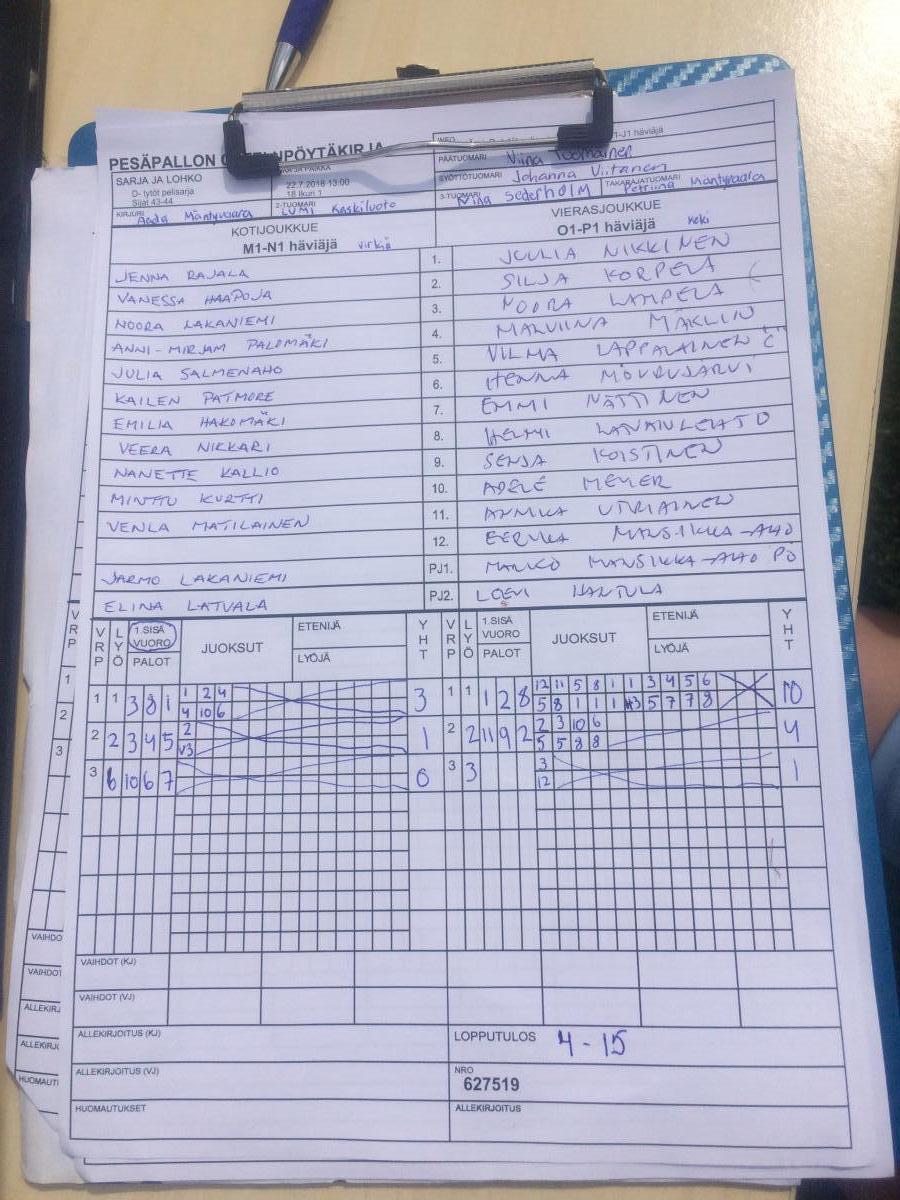 PESÄPALLON
PÖYTÄKIRJA
-J1 häviäjä
SARJA JA LOHKO
D- tytöt pelisarja
Sijat 43-44
22.7.2018 13:00
18 Ikuri 1
PÄÄTUOMARI Viina Tuomainen
SYÖTTÖTUOMARI Johanna Viitanen
KIRJURI Aada Mäntyvaara
2-TUOMARI LUMI Koskiluoto
3-TUOMARI Nina Sederholm
TAKARAJATUOMARI Petriina Mäntyvaara
KOTIJOUKKUE
M1-N1 häviäjä virkiä
VIERASJOUKKUE
O1-P1 häviäjä keki
JENNA RAJALA 1. JUULIA NIKKINEN
VANESSA HAAPOJA 2. SILJA KORPELA
NOORA LAKANIEMI 3. NOORA LAMPELA
ANNI-MIRJAM PALOMÄKI 4. MALVIINA MÄKLIN
JULIA SALMENAHO 5. VILMA LAPPALAINEN
KAILEN PATMORE 6. HENNA
EMILIA HAKOMÄKI 7. EMMI NÄTTINEN
VEERA NIKKARI 8. HELMI
NANETTE KALLIO 9. SENJA KOISTINEN
MINTTU KURTTI 10. ADELE MEYER
VENLA MATILAINEN 11. ANNIKA
12. EERIKA MANSIKKA-AHO
JARMO LAKANIEMI PJ1. MARKO MANSIKKA-AHO PÖ
ELINA LATVALA PJ2. HANTULA
VRP LYÖ 1.SISÄ VUORO PALOT JUOKSUT ETENIJÄ LYÖJÄ YHT VRP LYÖ 1.SISÄ VUORO PALOT JUOKSUT ETENIJÄ LYÖJÄ YHT
1 1 3 8 1 1 2 4 3 1 1 1 2 8 12 11 5 8 1 1 3 4 5 6 10
4 10 6 5 8 1 1 1 3 5 7 7 8
2 2 3 4 5 2 1 2 2 11 9 2 2 3 10 6 4
V3 5 5 8 8
3 6 10 6 7 0 3 3 3 1
12
VAIHDOT (KJ)
VAIHDOT (VJ)
ALLEKIRJOITUS (KJ)
LOPPUTULOS 4-15
ALLEKIRJOITUS (VJ)
NRO
627519
HUOMAUTUKSET
ALLEKIRJOITUS